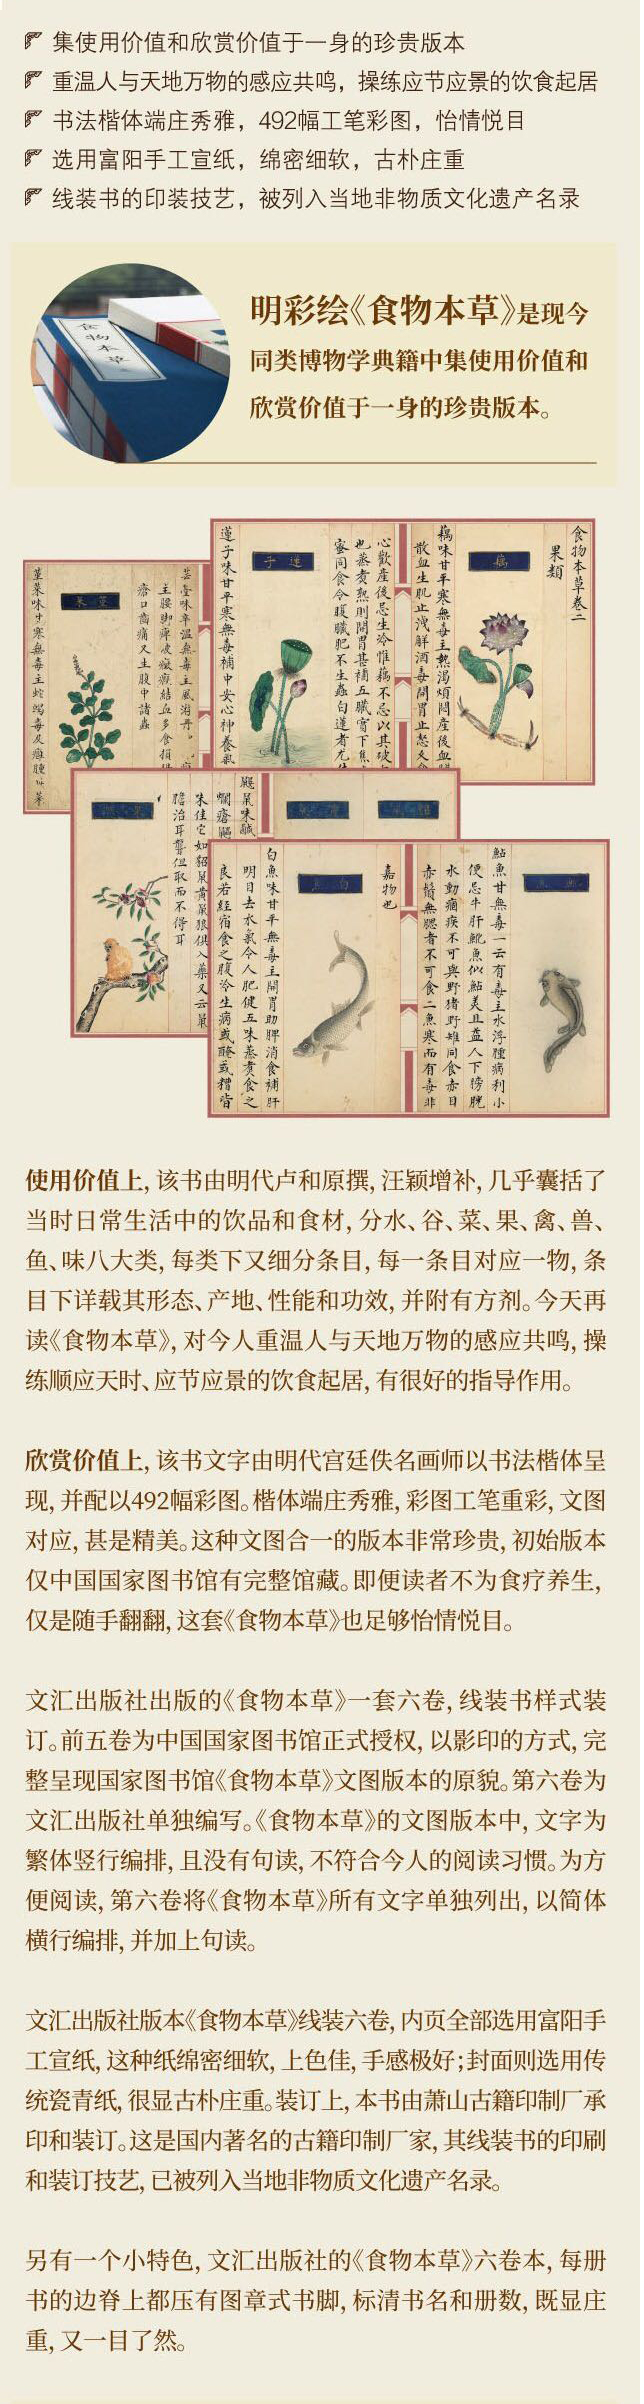 集使用价值和欣赏价值于一身的珍贵版本
重温人与天地万物的感应共鸣，操练应节应景的饮食起居
书法楷体端庄秀雅，492幅工笔彩图，怡情悦目
选用富阳手工宣纸，绵密细软，古朴庄重
线装书的印装技艺，被列入当地非物质文化遗产名录
食物本草
明彩绘《食物本草》是现今
同类博物学典籍中集使用价值和
欣赏价值于一身的珍贵版本。
食物本草卷二
果類
藕
藕味甘平寒無毒主熱渴煩悶產後血
散血生肌止洩解酒毒開胃止怒久食
心歡產後忌生冷惟藕不忌以其破
也蒸煮熟則開胃甚補五臟實下焦
蜜同食令腹臟肥不生蟲白蓮者尤
蓮子
蓮子味甘平寒無毒補中安心神養氣
芸薹味辛溫無毒主風游丹
主腰脚痺破癥瘕結血多食損
瘡口齒痛又生腹中諸蟲
堇菜
堇菜味寒無毒主蛇蝎毒及癰腫
鼹鼠味鹹
味佳它如貂鼠黃鼠狼俱入藥又云鼠
膽治耳聾但取而不得耳
鮀魚
鮎魚甘無毒一云有毒主水浮腫病利小
便忌牛肝鮀魚似鮎美且益人下膀胱
水動痼疾不可與野猪野雉同食赤目
赤鬚無腮者不可食二魚寒而有毒非
嘉物也
白魚
白魚味甘平無毒主開胃助脾消食補肝
明目去水氣令人肥健五味蒸煮食之
良若經宿食之腹冷生病或醃或糟皆
使用价值上，该书由明代卢和原撰，汪颖增补，几乎囊括了
当时日常生活中的饮品和食材，分水、谷、菜、果、禽、兽、
鱼、味八大类，每类下又细分条目，每一条目对应一物，条
目下详载其形态、产地、性能和功效，并附有方剂。今天再
读《食物本草》，对今人重温人与天地万物的感应共鸣，操
练顺应天时、应节应景的饮食起居，有很好的指导作用。
欣赏价值上，该书文字由明代宫廷佚名画师以书法楷体呈
现，并配以492幅彩图。楷体端庄秀雅，彩图工笔重彩，文图
对应，甚是精美。这种文图合一的版本非常珍贵，初始版本
仅中国国家图书馆有完整馆藏。即便读者不为食疗养生，
仅是随手翻翻，这套《食物本草》也足够怡情悦目。
文汇出版社出版的《食物本草》一套六卷，线装书样式装
订。前五卷为中国国家图书馆正式授权，以影印的方式，完
整呈现国家图书馆《食物本草》文图版本的原貌。第六卷为
文汇出版社单独编写。《食物本草》的文图版本中，文字为
繁体竖行编排，且没有句读，不符合今人的阅读习惯。为方
便阅读，第六卷将《食物本草》所有文字单独列出，以简体
横行编排，并加上句读。
文汇出版社版本《食物本草》线装六卷，内页全部选用富阳手
工宣纸，这种纸绵密细软，上色佳，手感极好；封面则选用传
统瓷青纸，很显古朴庄重。装订上，本书由萧山古籍印制厂承
印和装订。这是国内著名的古籍印制厂家，其线装书的印刷
和装订技艺，已被列入当地非物质文化遗产名录。
另有一个小特色，文汇出版社的《食物本草》六卷本，每册
书的边脊上都压有图章式书脚，标清书名和册数，既显庄
重，又一目了然。